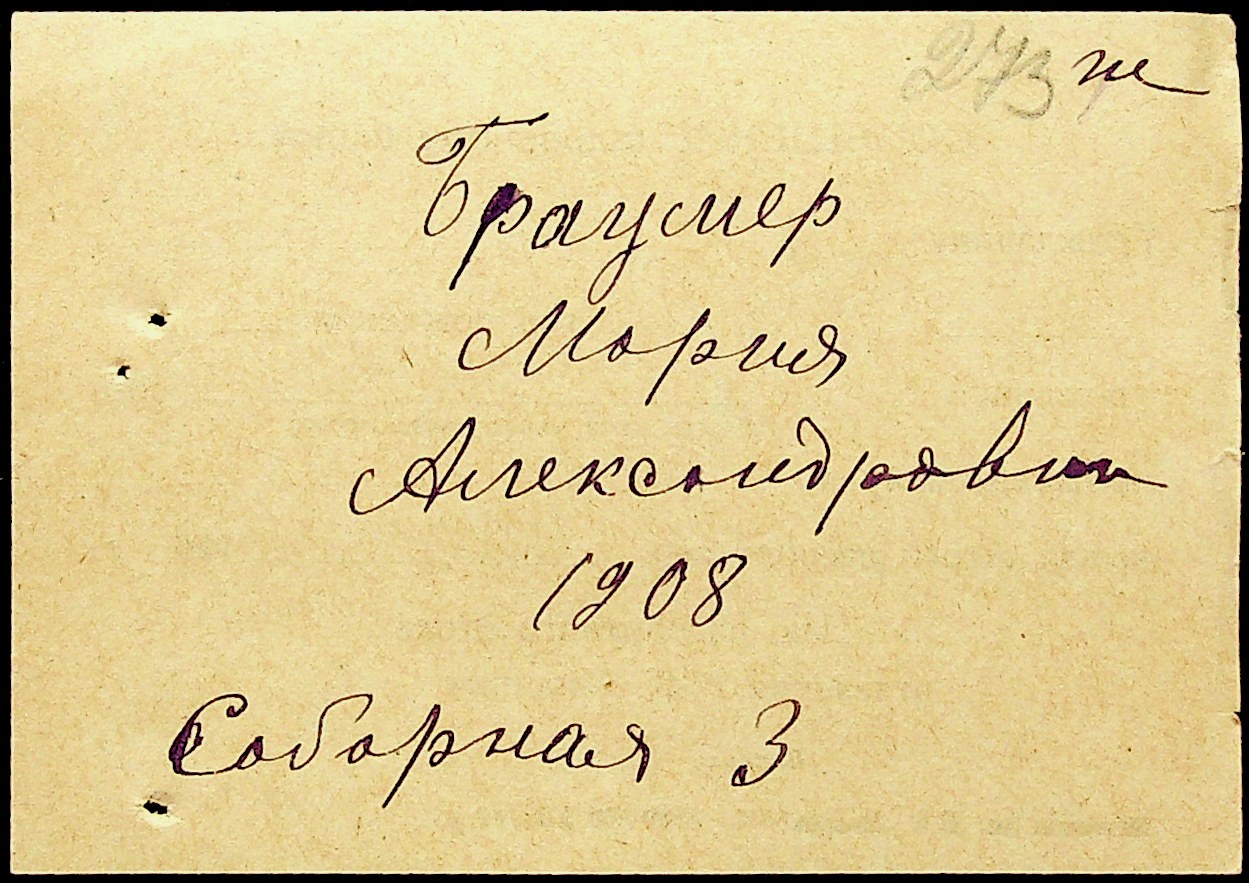 273 ж
Браумер
Мария
Александровн
1908
Соборная 3